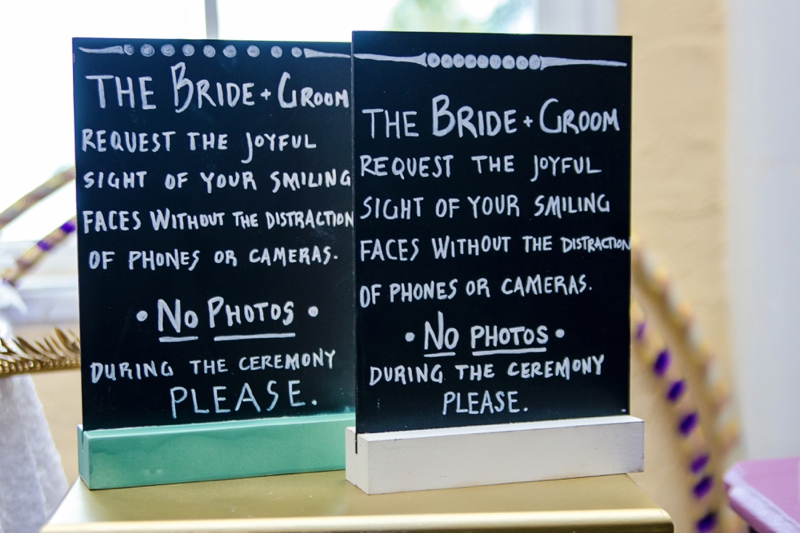 THE BRIDE + GROOM
REQUEST THE JOYFUL
SIGHT OF YOUR SMILING
FACES WITHOUT THE DISTRACTION
OF PHONES OR CAMERAS.
• NO PHOTOS •
DURING THE CEREMONY
PLEASE.
THE BRIDE + GROOM
REQUEST THE JOYFUL
SIGHT OF YOUR SMILING
FACES WITHOUT THE DISTRACTION
OF PHONES OR CAMERAS.
• NO PHOTOS •
DURING THE CEREMONY
PLEASE.